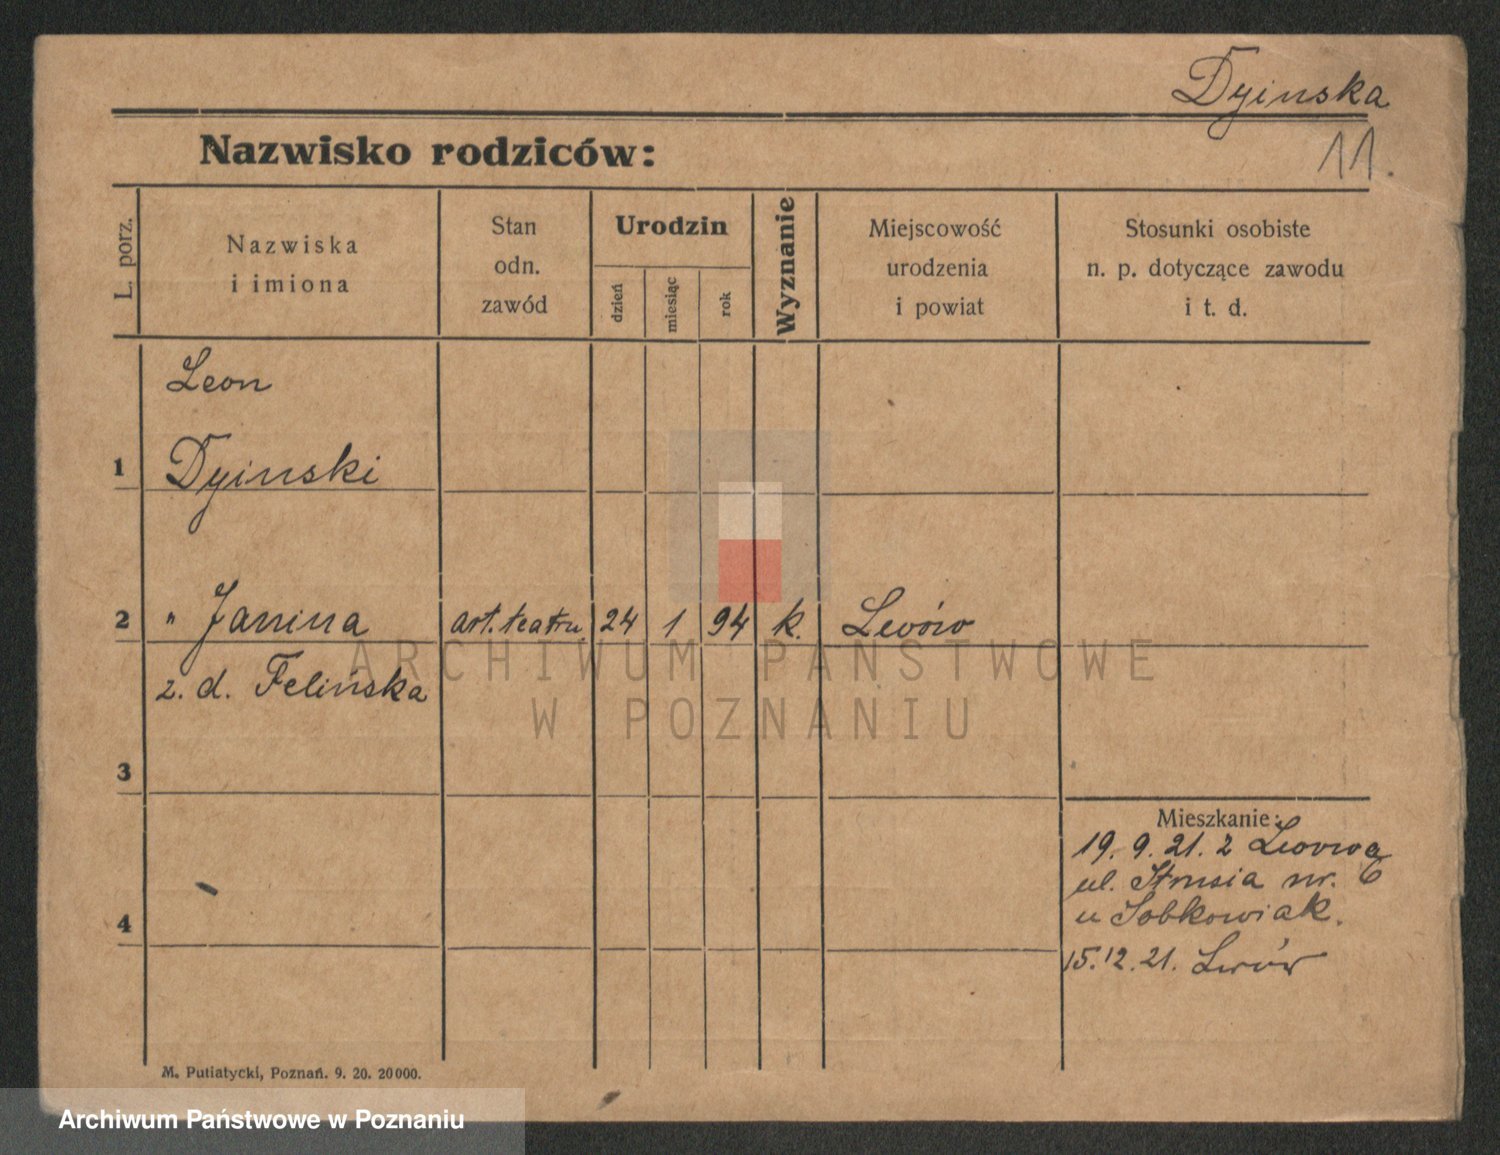 Dyinska
11.
Nazwisko rodziców:
L. porz.
Nazwiska
i imiona
Stan
odn.
zawód
Urodzin
dzień
miesiąc
rok
Wyznanie
Miejscowość
urodzenia
i powiat
Stosunki osobiste
n. p. dotyczące zawodu
i t. d.
Leon
1 Dyinski
2 " Janina art. teatru. 24 1 94 k. Lwów
z. d. Felińska
3
4
Mieszkanie:
19. 9. 21. z Lwowa
ul. Strusia nr. 6
u Sobkowiak.
15. 12. 21. Lwów
M. Putiatycki, Poznań. 9. 20. 20000.
ARCHIWUM PAŃSTWOWE
W POZNANIU
Archiwum Państwowe w Poznaniu